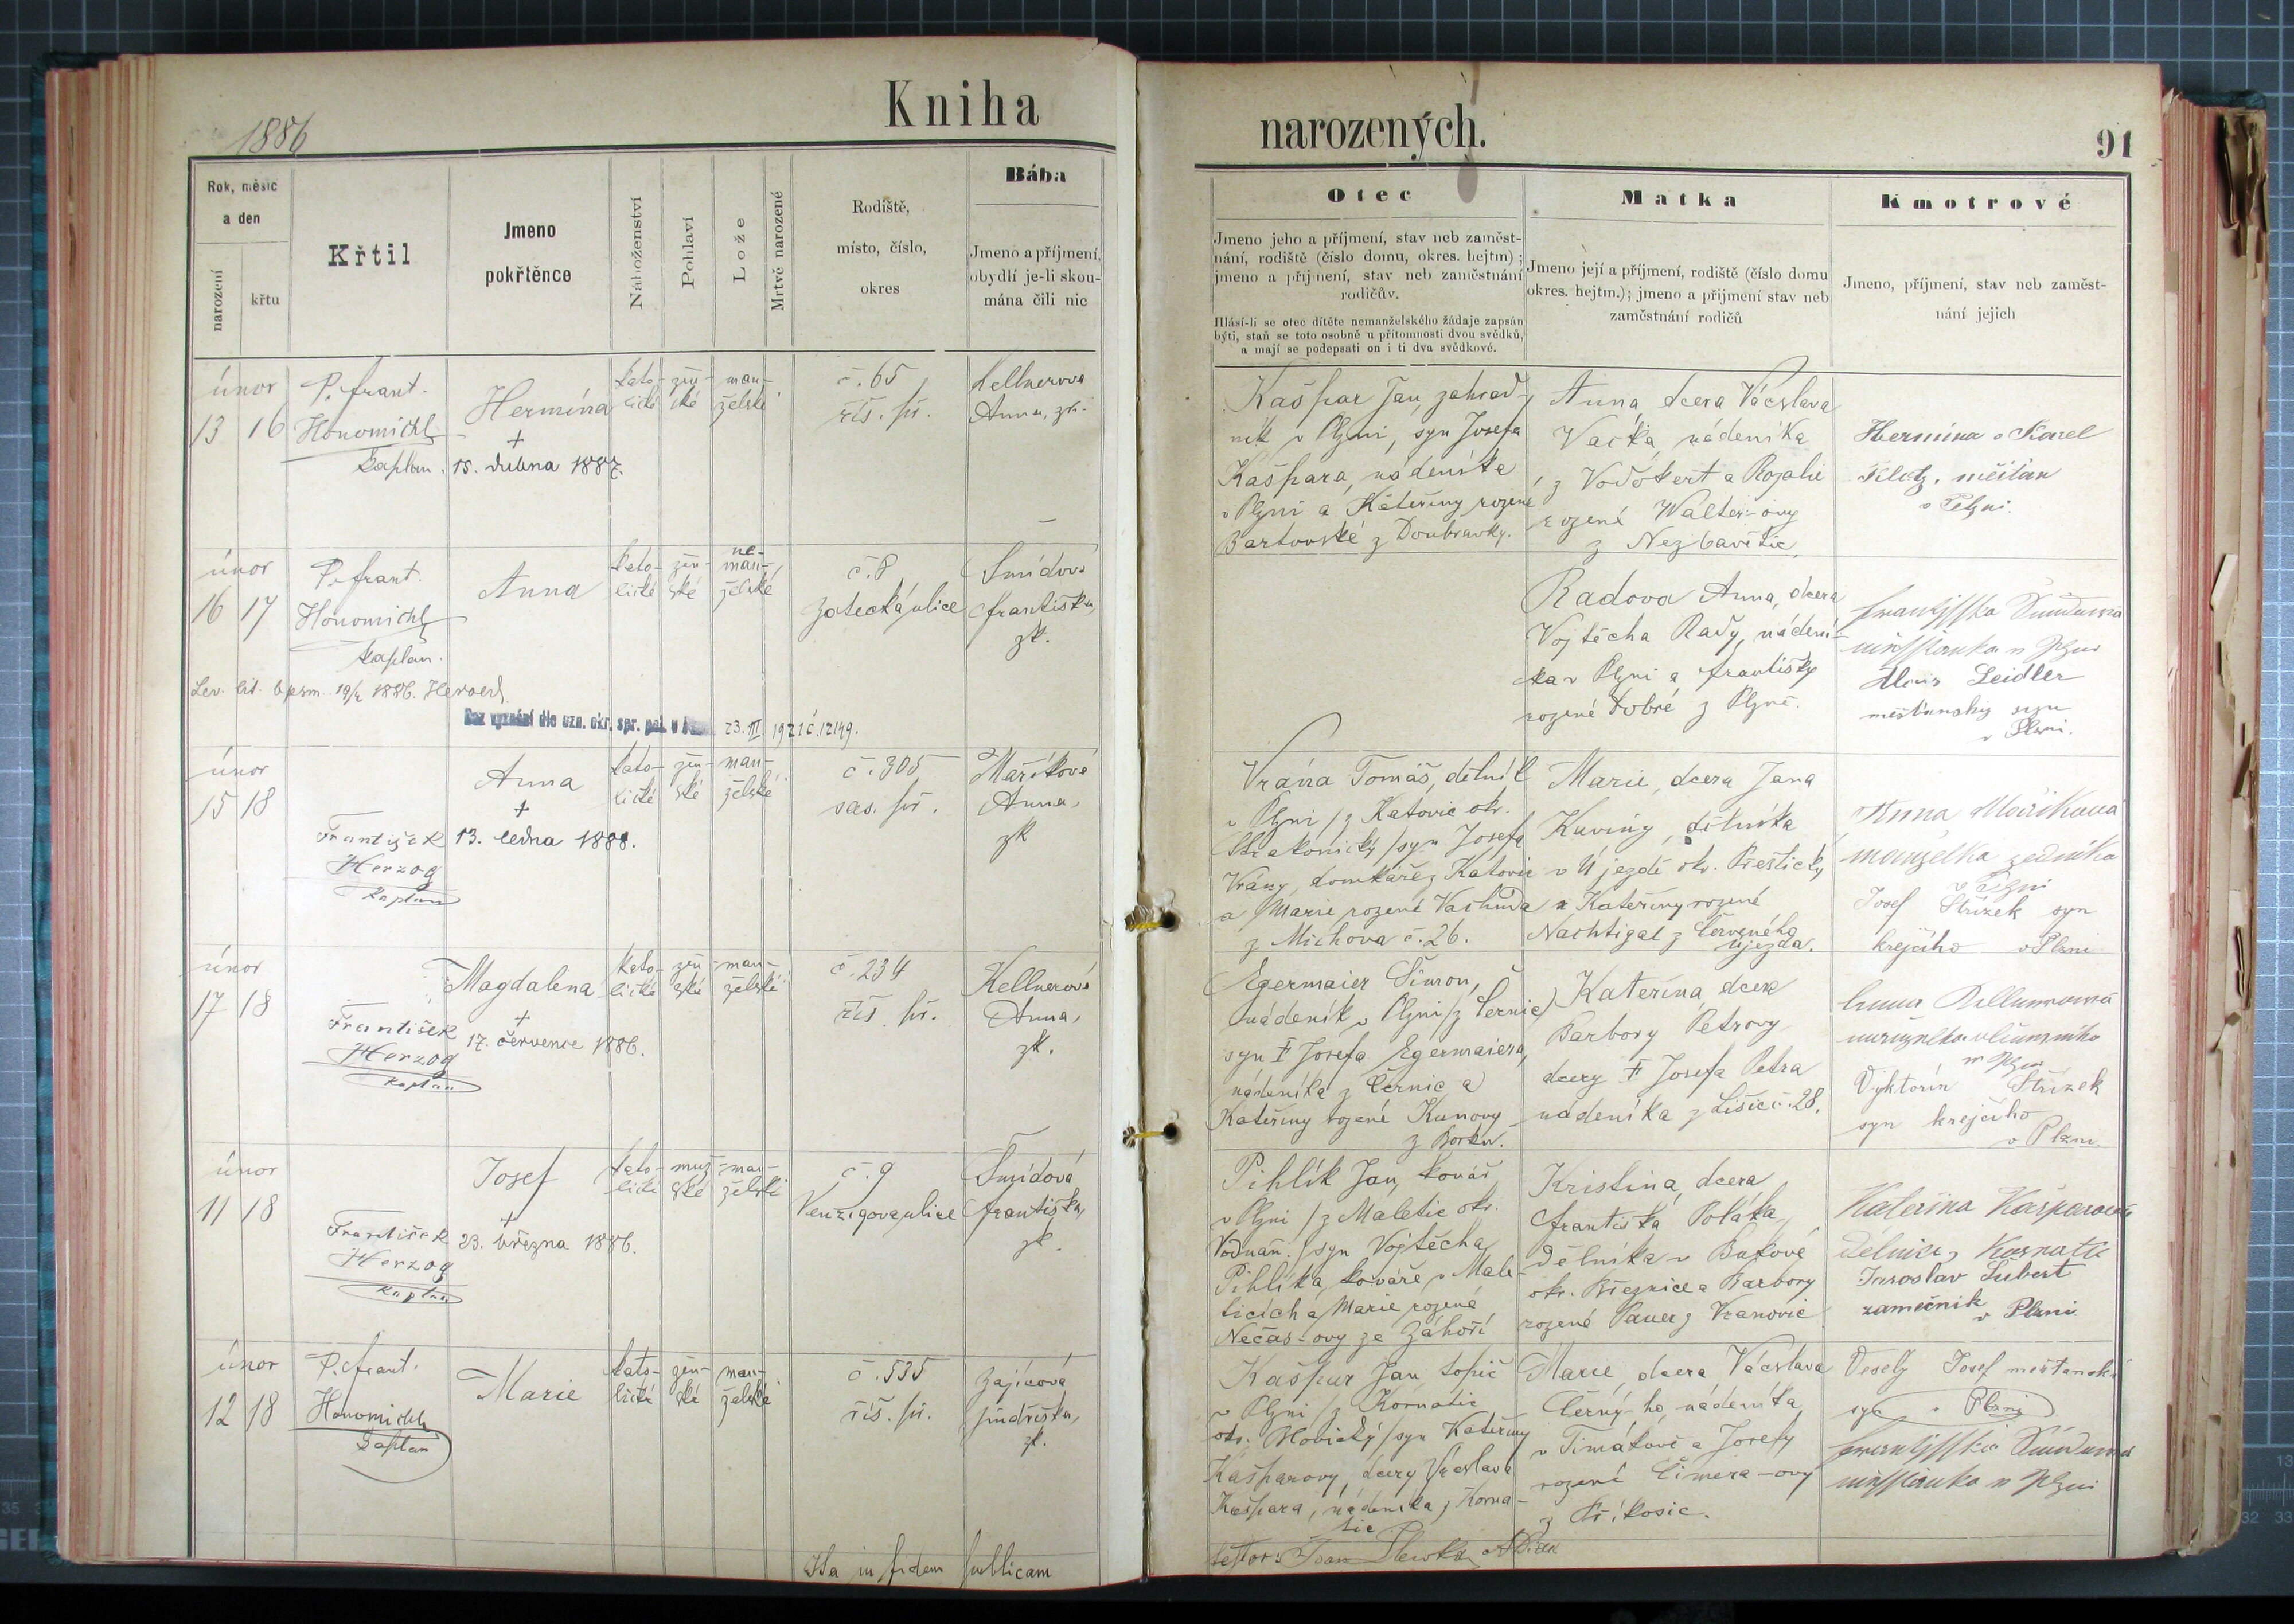 Kniha
narozených.
1886
91
Rok, měsíc
a den
narození
křtu
Křtil
Jmeno
pokřtěnce
Náboženství
Pohlaví
Lože
Mrtvě narozené
Rodiště,
místo, číslo,
okres
Bába
Jmeno a příjmení,
obydlí je-li skou-
mána čili nic
Otec
Jmeno jeho a příjmení, stav neb zaměst-
nání, rodiště (číslo domu, okres. hejtm);
jmeno a příjmení, stav neb zaměstnání
rodičův.
Hlásí-li se otec dítěte nemanželského žádaje zapsán
býti, staň se toto osobně u přítomnosti dvou svědků,
a mají se podepsati on i ti dva svědkové.
Matka
Jmeno její a příjmení, rodiště (číslo domu
okres. hejtm.); jmeno a příjmení stav neb
zaměstnání rodičů
Kmotrové
Jmeno, příjmení, stav neb zaměst-
nání jejich
únor
13 16
P. Frant.
Honomichl
kaplan.
Hermína
+
15. dubna 1887.
kato-
lické
žen-
ské
man-
želské
č. 65
říš. př.
Kellnerova
Anna, zk.
Kašpar Jan, zahrad-
ník v Plzni, syn Josefa
Kašpara, nádeníka
v Plzni a Kateřiny rozené
Bartovské z Doubravky.
Anna, dcera Václava
Vačka, nádeníka
z Vodokert a Rozalie
rozené Walter-ovy
z Nezbavětic.
Hermina a Karel
měšťan
v Plzni.
únor
16 17
P. Frant.
Honomichl
kaplan.
Anna
kato-
lické
žen-
ské
ne-
man-
želské
č. 8
Žatecká ulice
Šmídová
Františka,
zk.
Radova Anna, dcera
Vojtěcha Rady, nádení-
ka v Plzni a Františky
rozené Dobré z Plzně.
Alois Seidler
měšťanský syn
v Plzni.
19/2 1886.
Bez vyznání dle ozn. okr. spr. pol. v 23. III. 1921 č. 12149.
únor
15 18
František
Herzog
kaplan
Anna
+
13. ledna 1888.
kato-
lické
žen-
ské
man-
želské
č. 305
sas. př.
Maříková
Anna,
zk
Vrána Tomáš, dělník
v Plzni /z Katovic okr.
Strakonický/ syn Josefa
Vrány, domkáře z Katovic
a Marie rozené Vachuda
z Michova č. 26.
Marie, dcera Jana
Kuviny, dělníka
v Újezdě okr. Přeštický
a Kateřiny rozené
Nachtigal z Červeného
Újezda.
Anna Maříkova
manželka zedníka
v Plzni
Josef Střízek syn
krejčího v Plzni
únor
17 18
František
Herzog
kaplan
Magdalena
+
17. července 1886.
kato-
lické
žen-
ské
man-
želské
č. 234
říš. př.
Kellnerová
Anna,
zk.
Egermaier Šimon,
nádeník v Plzni /z Černic/
syn † Josefa Egermaiera,
nádeníka z Černic a
Kateřiny rozené Kunovy
z Borku.
Kateřina, dcera
Barbory Petrovy
dcery † Josefa Petra
nádeníka z Lišic č. 28.
Vyktorín Střízek
syn krejčího
v Plzni.
únor
11 18
František
Herzog
kaplan
Josef
+
23. března 1886.
kato-
lické
muž-
ské
man-
želské
č. 9
Venzigova ulice
Šmídová
Františka,
zk.
Pihlík Jan, kovář
v Plzni /z Maletic okr.
Vodňan./ syn Vojtěcha
Pihlíka, kováře v Male-
ticích a Marie rozené
Nečas-ovy ze Záhoří
Kristina, dcera
Františka Poláka,
dělníka v Bukové
okr. Březnice a Barbory
rozené Pauer z Vranovic
Kateřina Kašparová
dělnice z Kornatic
Jaroslav Šubert
zamečník
v Plzni
únor
12 18
P. Frant.
Honomichl
kaplan
Marie
kato-
lické
žen-
ské
man-
želské
č. 535
říš. př.
Zajícová
Jindřiška,
zk.
Kašpar Jan, topič
v Plzni /z Kornatic
okr. Blovický/ syn Kateřiny
Kašparovy, dcery Václava
Kašpara, nádeníka z Korna-
tic
Marie, dcera Václava
Černý-ho, nádeníka
v Timákově a Josefy
rozené Čimera-ovy
z Příkosic.
Veselý Josef měšťanský
syn v Plzni
Ita in fidem publicam
testor: